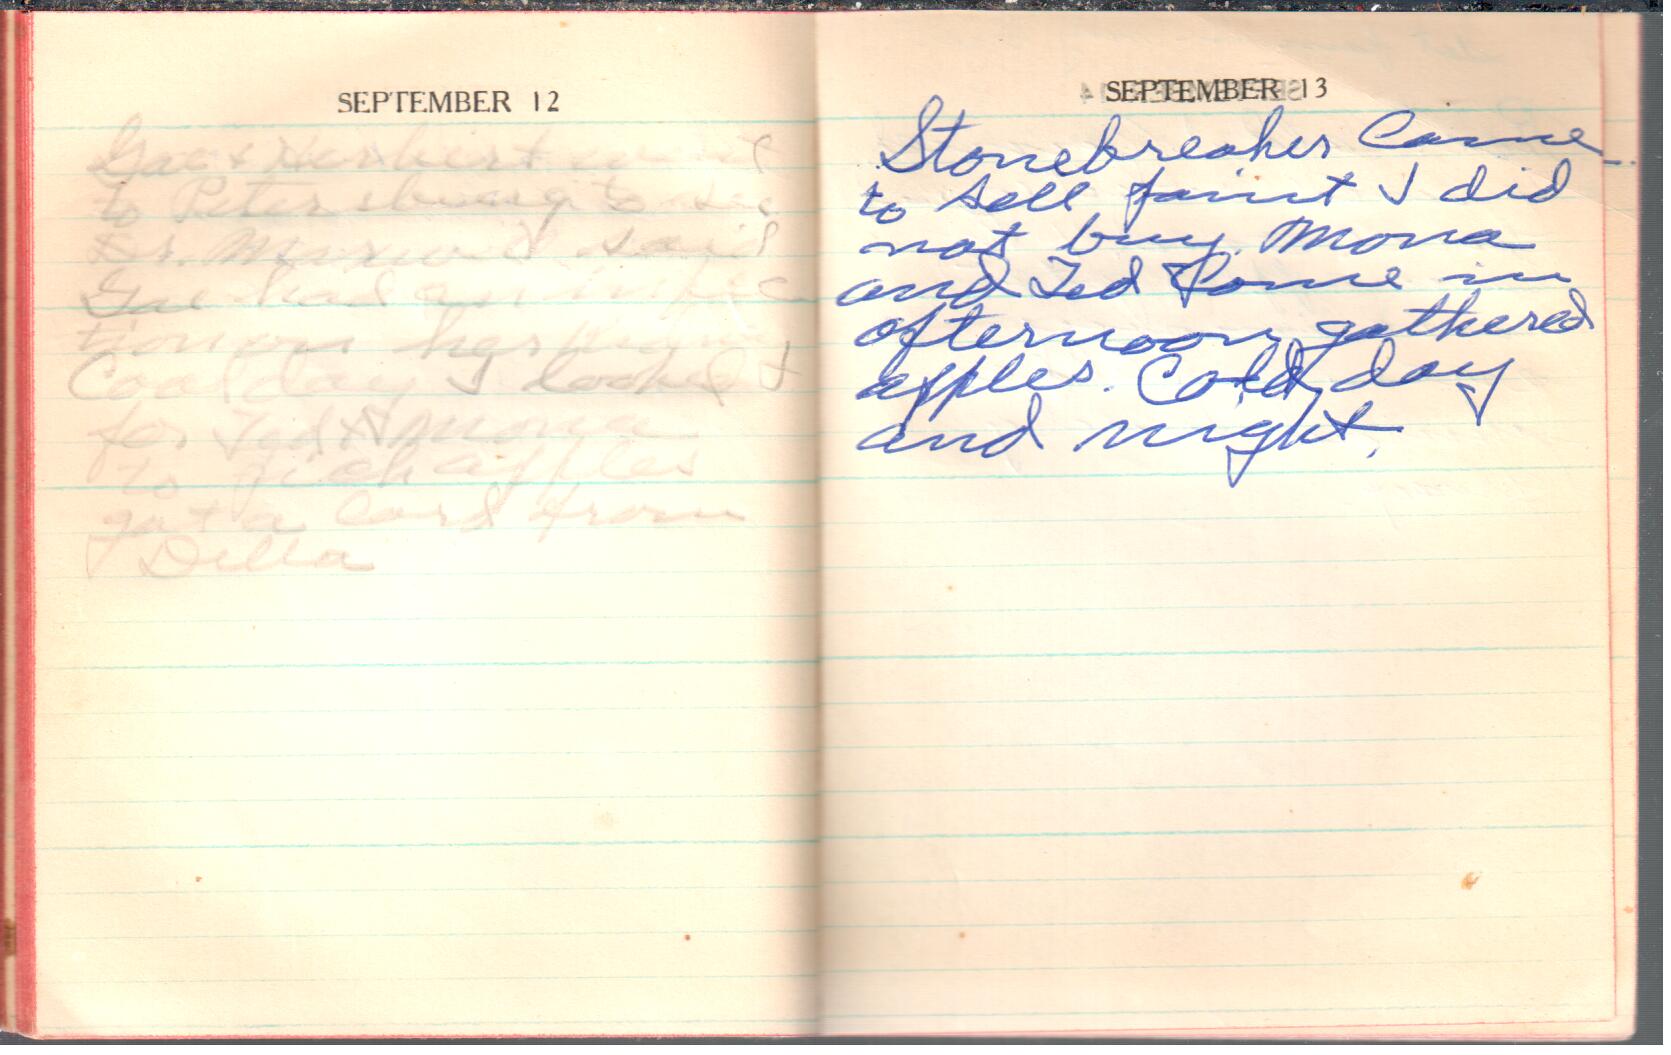 SEPTEMBER 12
Gae & Herbert went
to Petersburg to see
Dr. said
Gae had an infec
tion on her
Cool day I looked
for Ted & Mona
to pick apples
got a card from
Della
SEPTEMBER 13
Stonebreaker Came
to sell paint I did
not buy. Mona
and Ted Come in
afternoon gathered
apples. Cold day
and night.